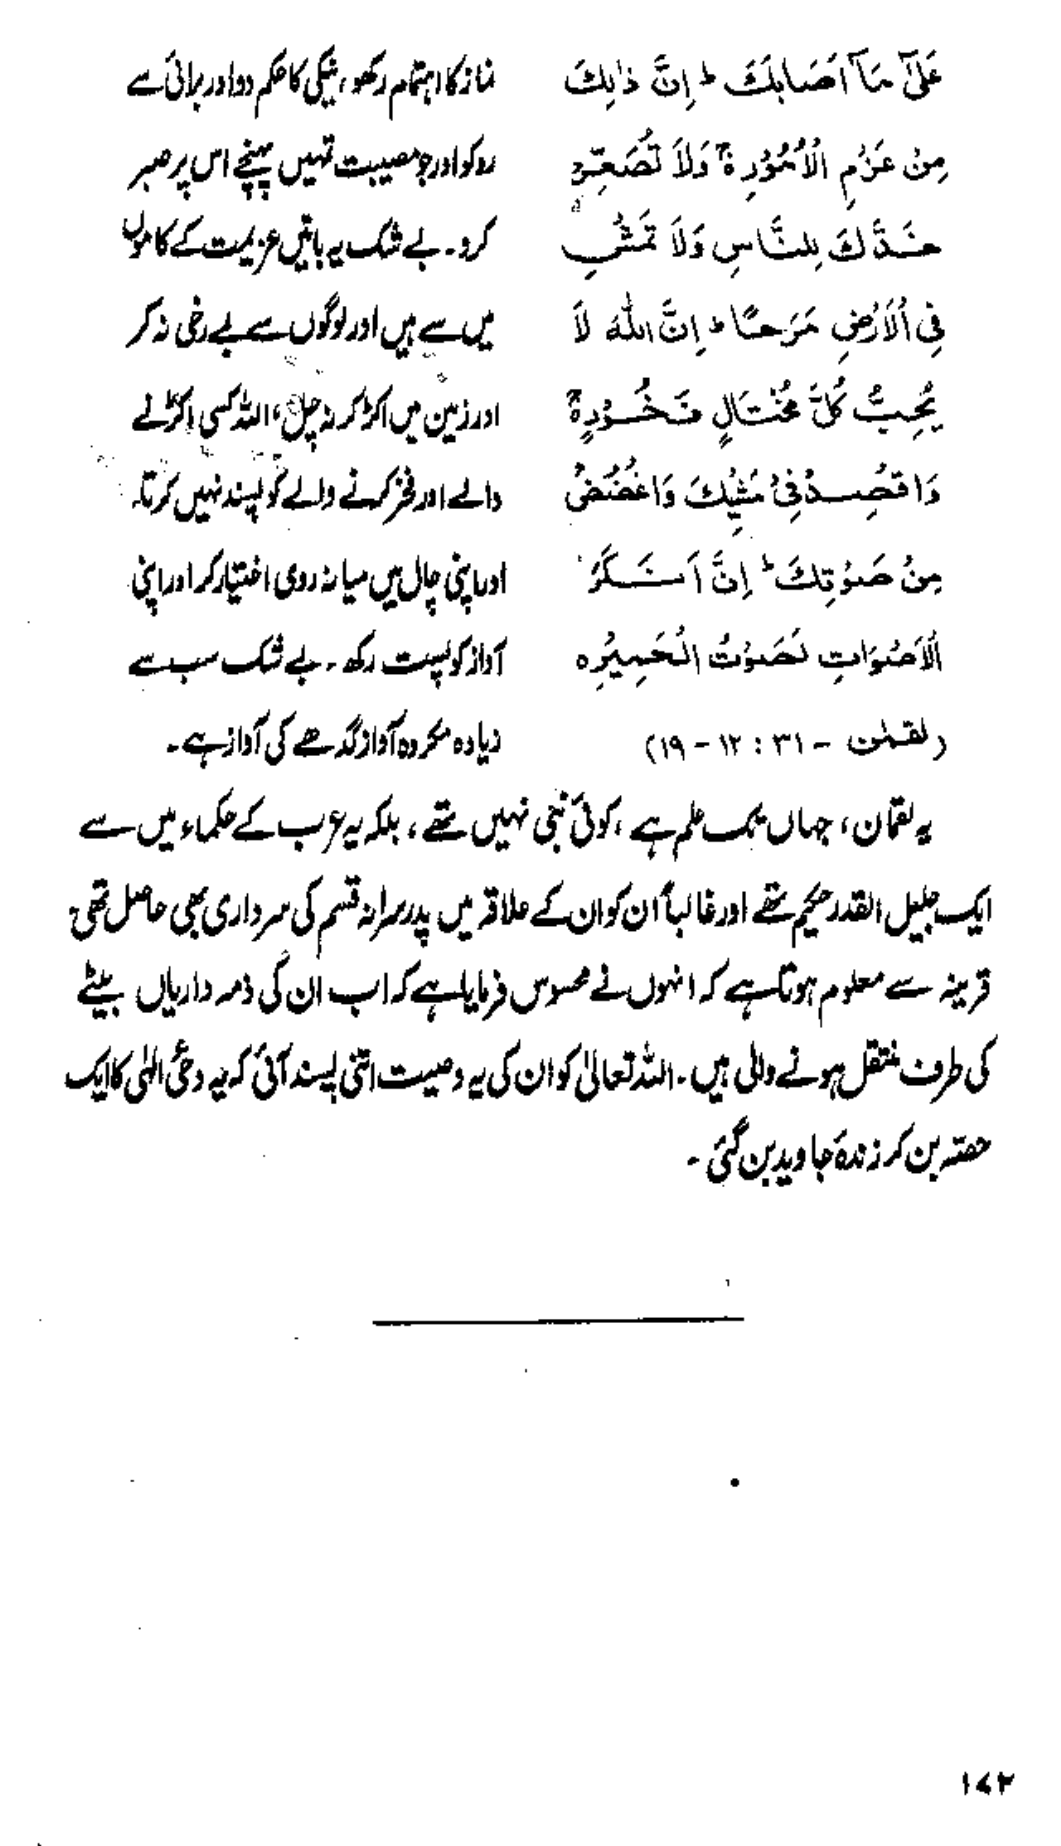 عَلٰى مَآ اَصَابَكَ ط اِنَّ ذٰلِكَ
مِنْ عَزْمِ الْاُمُوْرِ ہ وَلَا تُصَعِّرْ
خَدَّكَ لِلنَّاسِ وَلَا تَمْشِ
فِى الْاَرْضِ مَرَحًا ط اِنَّ اللّٰهَ لَا
يُحِبُّ كُلَّ مُخْتَالٍ فَخُوْرٍ ہ
وَاقْصِدْ فِىْ مَشْيِكَ وَاغْضُضْ
مِنْ صَوْتِكَ ط اِنَّ اَنْكَرَ
الْاَصْوَاتِ لَصَوْتُ الْحَمِيْرِ ہ
(لقمٰن - ۳۱ : ۱۲ - ۱۹)
نماز کا اہتمام رکھو، نیکی کا حکم دو اور برائی سے
روکو اور جو مصیبت تمہیں پہنچے اس پر صبر
کرو۔ بے شک یہ باتیں عزیمت کے کاموں
میں سے ہیں اور لوگوں سے بے رخی نہ کر
اور زمین میں اکڑ کر نہ چل، اللہ کسی اکڑنے
والے اور فخر کرنے والے کو پسند نہیں کرتا۔
اور اپنی چال میں میانہ روی اختیار کر اور اپنی
آواز کو پست رکھ ۔ بے شک سب سے
زیادہ مکروہ آواز گدھے کی آواز ہے۔
یہ لقمان، جہاں تک علم ہے، کوئی نبی نہیں تھے، بلکہ یہ عرب کے حکماء میں سے
ایک جلیل القدر حکیم تھے اور غالباً ان کو ان کے علاقہ میں پدرسرانہ قسم کی سرداری بھی حاصل تھی۔
قرینہ سے معلوم ہوتا ہے کہ انہوں نے محسوس فرمایا ہے کہ اب ان کی ذمہ داریاں بیٹے
کی طرف منتقل ہونے والی ہیں۔ اللہ تعالیٰ کو ان کی یہ وصیت اتنی پسند آئی کہ یہ وحیٔ الٰہی کا ایک
حصّہ بن کر زندۂ جاوید بن گئی ۔
۱۷۲